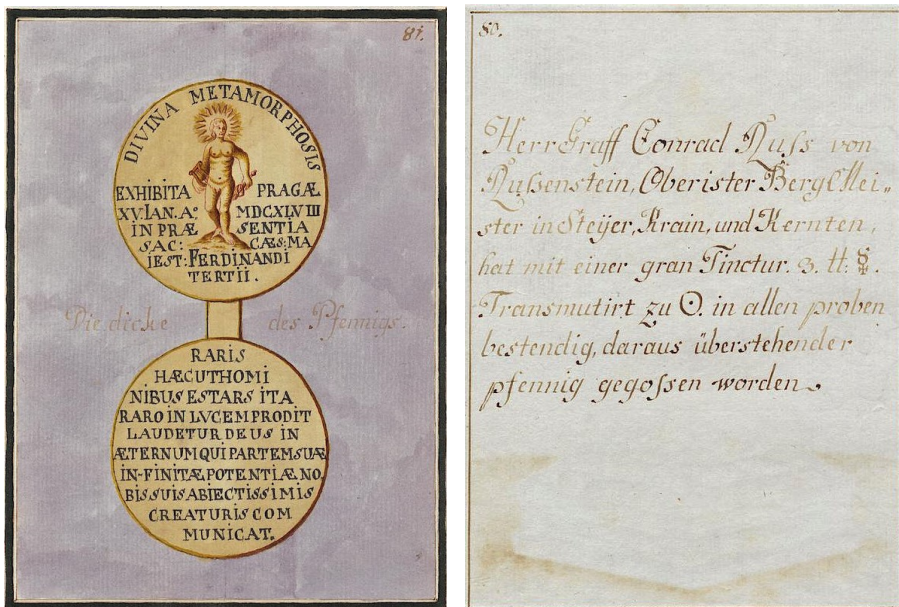 81.
DIVINA METAMORPHOSIS
EXHIBITA PRAGÆ
XV. IAN. Aº MDCXLVIII
IN PRÆ SENTIA
SAC: CÆS: MA
IEST: FERDINANDI
TERTII.
Die dicke des Pfennigs.
RARIS
HÆC UT HOMI
NIBUS EST ARS ITA
RARO IN LVCEM PRODIT
LAUDETUR DEUS IN
ÆTERNUM QUI PARTEM SUÆ
IN-FINITÆ POTENTIÆ NO
BIS SUIS ABIECTISSIMIS
CREATURIS COM
MUNICAT.
80.
Herr Graff Conrad Ruſs von
Ruſsenstein, Oberister BergMei„
ster in Steijer, Krain, und Kernten,
hat mit einer gran Tinctur. 3. ℔.
Transmutirt zu ☉. in allen proben
bestendig, daraus überstehender
pfennig gegoſsen worden.